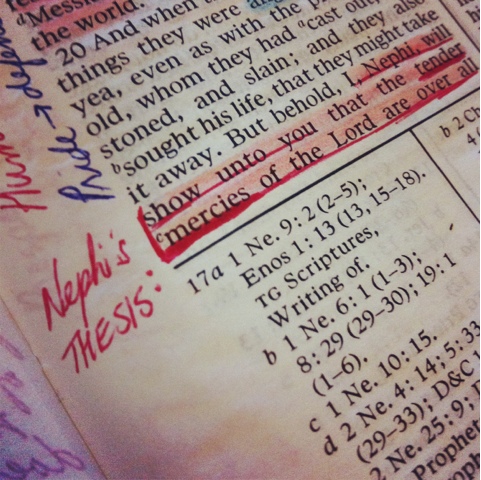 "Messia
the world.
20 And when
things they were
yea, even as with the p
old, whom they had "cast out,
stoned, and slain; and they also
bsought his life, that they might take
it away. But behold, I, Nephi, will
show unto you that the tender
cmercies of the Lord are over all
Pride → defen
Nephi's
THESIS:
17a 1 Ne. 9:2 (2–5);
Enos 1:13 (13, 15–18).
TG Scriptures,
Writing of.
b 1 Ne. 6:1 (1–3);
8:29 (29–30); 19:1
(1–6).
c 1 Ne. 10:15.
d 2 Ne. 4:14; 5:33
(29–33); D&C
2 Ne. 25:9; D
Prophet
b 2 Ch